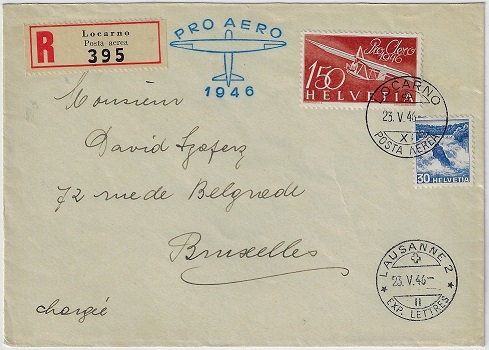 R
Locarno
Posta aerea
395
PRO AERO
1946
Pro Aero
1946
150
HELVETIA
LOCARNO
23.V.46-
XI
POSTA AEREA
30 HELVETIA
Monsieur
David
72 rue de Belgrade
Bruxelles
chargée
LAUSANNE 2
23.V.46-
II
EXP. LETTRES